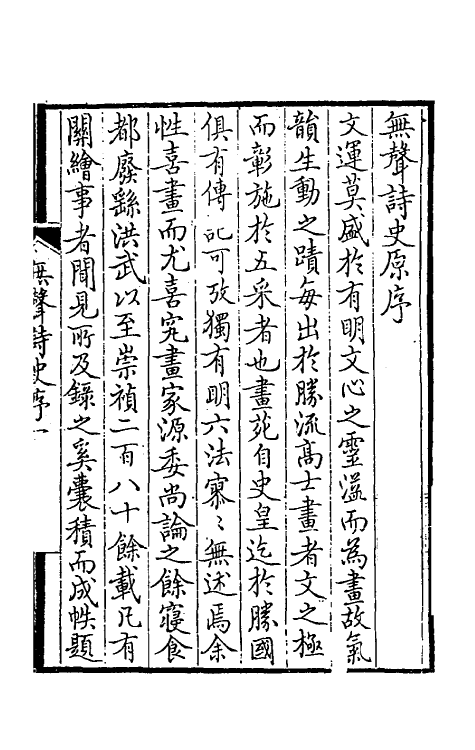 無聲詩史原序
文運莫盛於有明文心之靈溢而為畫故氣
韻生動之蹟每出於勝流高士畫者文之極
而彰施於五采者也畫苑自史皇迄於勝國
俱有傳記可攷獨有明六法寥〻無述焉余
性喜畫而尤喜究畫家源委尚論之餘寢食
都廢繇洪武以至崇禎二百八十餘載凡有
關繪事者聞見所及錄之奚囊積而成帙題
無聲詩史序 一